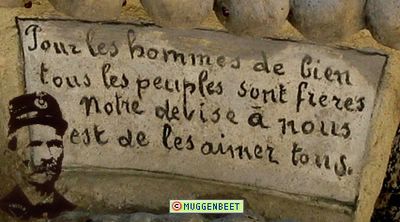 Pour les hommes de bien
tous les peuples sont frères
Notre devise à nous
est de les aimer tous.
© MUGGENBEET